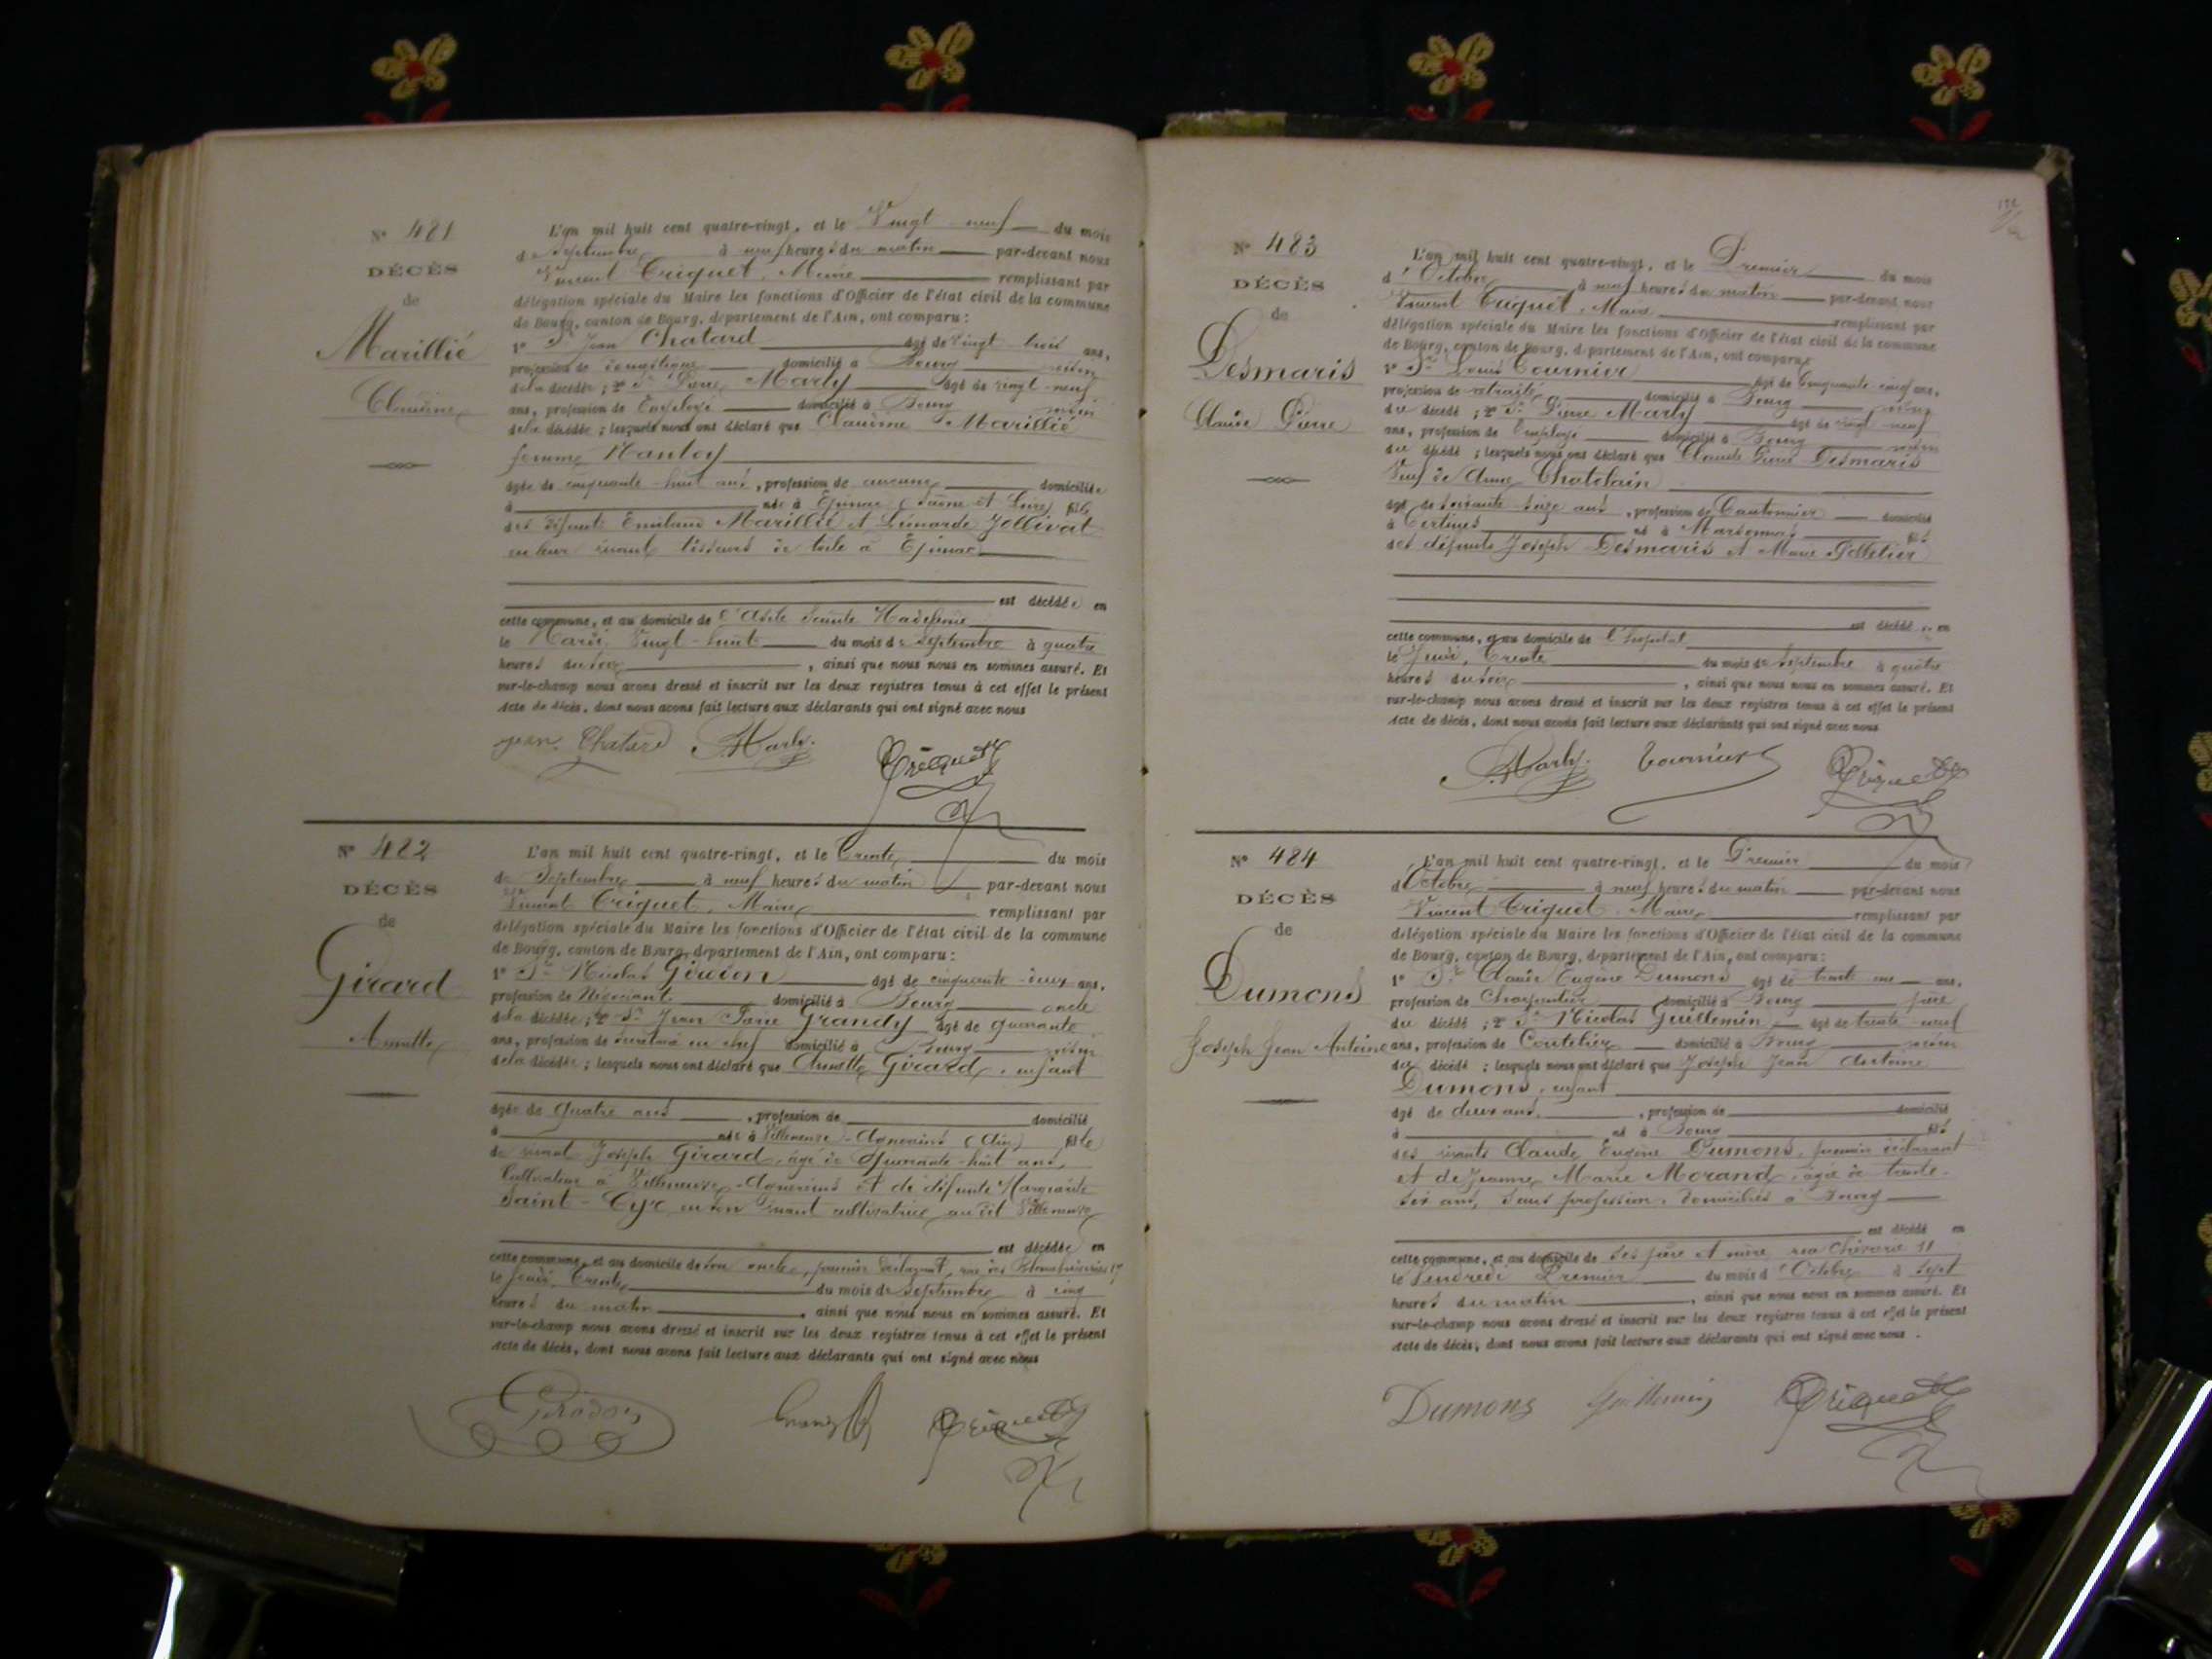 N° 481
DÉCÈS
de
Marillié
Claudine
L'an mil huit cent quatre-vingt, et le Vingt neuf du mois
de Septembre à neuf heures du matin par-devant nous
Vincent Criquet, Maire remplissant par
délégation spéciale du Maire les fonctions d'Officier de l'état civil de la commune
de Bourg, canton de Bourg, département de l'Ain, ont comparu :
1° Sr Jean Chatard âgé de vingt trois ans,
profession de domestique domicilié à Bourg voisin
de la décédée ; 2° Sr Pierre Marly âgé de vingt-neuf
ans, profession de Employé domicilié à Bourg voisin
de la décédée ; lesquels nous ont déclaré que Claudine Marillié
femme
âgée de cinquante-huit ans, profession de aucune domiciliée
à née à Epinac (Saône et Loire) fille
des défunts Marillié et Léonarde Jollivat
en leur vivant tisseurs de toile à Epinac
est décédée en
cette commune, et au domicile de l'Asile Sainte Madeleine
le Mardi Vingt-huit du mois de Septembre à quatre
heures du soir, ainsi que nous nous en sommes assuré. Et
sur-le-champ nous avons dressé et inscrit sur les deux registres tenus à cet effet le présent
acte de décès, dont nous avons fait lecture aux déclarants qui ont signé avec nous
jean Chatard Marly Criquet
N° 482
DÉCÈS
de
Girard
Annette
L'an mil huit cent quatre-vingt, et le Trente du mois
de Septembre à neuf heures du matin par-devant nous
Vincent Criquet, Maire remplissant par
délégation spéciale du Maire les fonctions d'Officier de l'état civil de la commune
de Bourg, canton de Bourg, département de l'Ain, ont comparu :
1° Sr Nicolas âgé de cinquante-deux ans,
profession de Négociant domicilié à Bourg oncle
de la décédée ; 2° Sr Jean Grandy âgé de quarante
ans, profession de secrétaire en chef domicilié à Bourg voisin
de la décédée ; lesquels nous ont déclaré que Annette Girard, enfant
âgée de quatre ans, profession de domicilié
à née à Villeneuve-Agnereins (Ain) fille
de vivant Joseph Girard, âgé de quarante-huit ans,
Cultivateur à Villeneuve-Agnereins et de défunte Marguerite
Saint-Cyr, en son vivant cultivatrice au dit Villeneuve
est décédée en
cette commune, et au domicile de son oncle, premier déclarant, rue des
le Jeudi, Trente du mois de Septembre à cinq
heures du matin, ainsi que nous nous en sommes assuré. Et
sur-le-champ nous avons dressé et inscrit sur les deux registres tenus à cet effet le présent
acte de décès, dont nous avons fait lecture aux déclarants qui ont signé avec nous
Criquet
N° 483
DÉCÈS
de
Desmaris
Claude Pierre
L'an mil huit cent quatre-vingt, et le Premier du mois
d'Octobre à neuf heures du matin par-devant nous
Vincent Criquet, Maire remplissant par
délégation spéciale du Maire les fonctions d'Officier de l'état civil de la commune
de Bourg, canton de Bourg, département de l'Ain, ont comparu
1° Sr Louis Tournier âgé de Cinquante cinq ans,
profession de retraité domicilié à Bourg voisin
du décédé ; 2° Sr Pierre Marly âgé de vingt-neuf
ans, profession de Employé domicilié à Bourg voisin
du décédé ; lesquels nous ont déclaré que Claude Pierre Desmaris
Veuf de Anne Chatelain
âgé de soixante-seize ans, profession de Cantonnier domicilié
à Certines né à Marsonnas fils
des défunts Joseph Desmaris et Marie Pelletier
est décédé en
cette commune, et au domicile de l'hopital
le Jeudi, Trente du mois de Septembre à quatre
heures du soir, ainsi que nous nous en sommes assuré. Et
sur-le-champ nous avons dressé et inscrit sur les deux registres tenus à cet effet le présent
acte de décès, dont nous avons fait lecture aux déclarants qui ont signé avec nous
Marly Tournier Criquet
N° 484
DÉCÈS
de
Dumons
Joseph Jean Antoine
L'an mil huit cent quatre-vingt, et le Premier du mois
d'Octobre à neuf heures du matin par-devant nous
Vincent Criquet, Maire remplissant par
délégation spéciale du Maire les fonctions d'Officier de l'état civil de la commune
de Bourg, canton de Bourg, département de l'Ain, ont comparu :
1° Sr Claude Eugène Dumons âgé de trente ans,
profession de Charpentier domicilié à Bourg père
du décédé ; 2° Sr Nicolas Guillemin âgé de trente-neuf
ans, profession de Coutelier domicilié à Bourg voisin
du décédé ; lesquels nous ont déclaré que Joseph Jean Antoine
Dumons, enfant
âgé de deux ans, profession de domicilié
à né à Bourg fils
des vivants Claude Eugène Dumons, premier déclarant
et de Jeanne Marie Morand, âgée de trente-
six ans, sans profession, domiciliés à Bourg
est décédé en
cette commune, et au domicile de ses père et mère, rue 11
le Vendredi Premier du mois d'Octobre à sept
heures du matin, ainsi que nous nous en sommes assuré. Et
sur-le-champ nous avons dressé et inscrit sur les deux registres tenus à cet effet le présent
acte de décès, dont nous avons fait lecture aux déclarants qui ont signé avec nous.
Dumons Guillemin Criquet